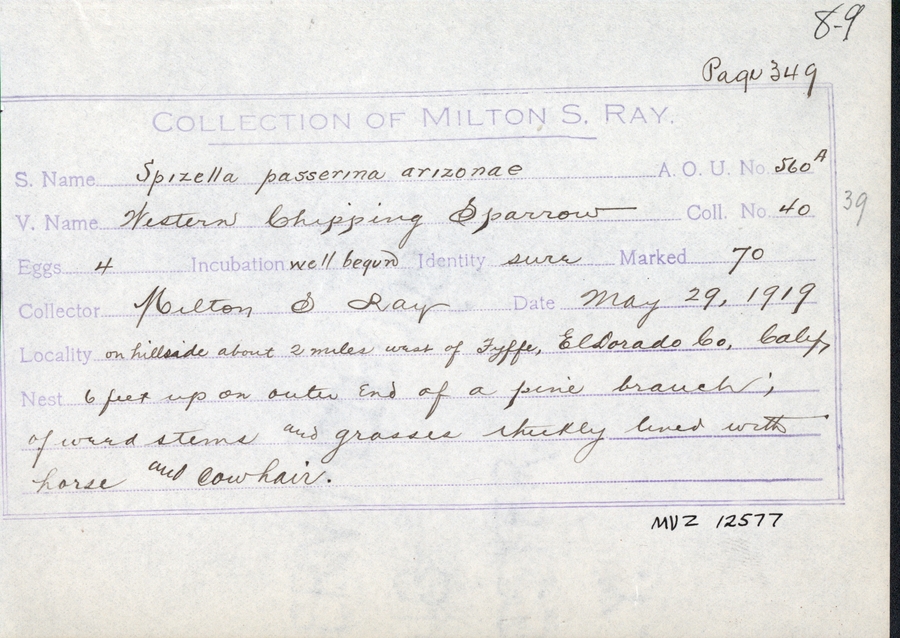 8-9
Page 349
COLLECTION OF MILTON S. RAY.
S. Name Spizella passerina arizonae A. O. U. No. 560A
V. Name Western Chipping Sparrow Coll. No. 40
39
Eggs 4 Incubation well begun Identity sure Marked 70
Collector Milton S Ray Date May 29, 1919
Locality on hillside about 2 miles west of Fyffe, El Dorado Co, Calif,
Nest 6 feet up on outer end of a pine branch;
of weed stems and grasses thickly lined with
horse and cowhair.
MVZ 12577